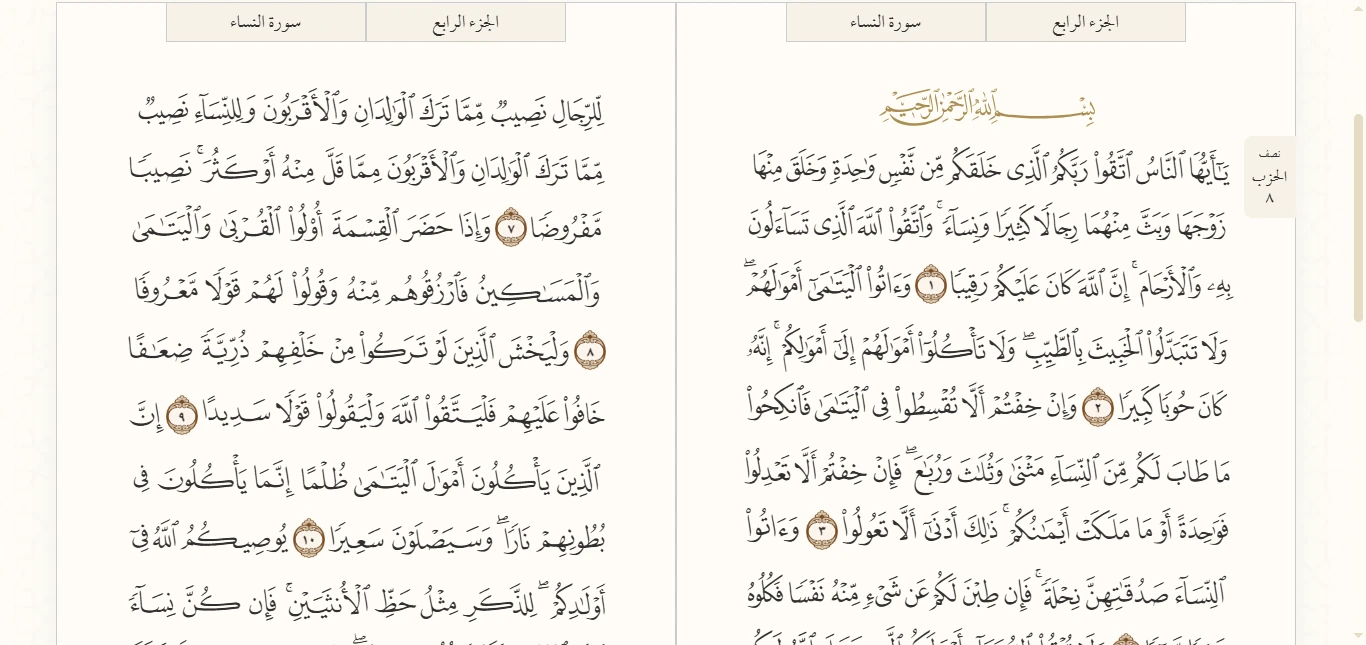 الجزء الرابع
سورة النساء
بِسْمِ ٱللَّهِ ٱلرَّحْمَٰنِ ٱلرَّحِيمِ
نصف
الحزب
٨
يَٰٓأَيُّهَا ٱلنَّاسُ ٱتَّقُوا۟ رَبَّكُمُ ٱلَّذِى خَلَقَكُم مِّن نَّفْسٍ وَٰحِدَةٍ وَخَلَقَ مِنْهَا
زَوْجَهَا وَبَثَّ مِنْهُمَا رِجَالًا كَثِيرًا وَنِسَآءً ۚ وَٱتَّقُوا۟ ٱللَّهَ ٱلَّذِى تَسَآءَلُونَ
بِهِۦ وَٱلْأَرْحَامَ ۚ إِنَّ ٱللَّهَ كَانَ عَلَيْكُمْ رَقِيبًا ١ وَءَاتُوا۟ ٱلْيَتَٰمَىٰٓ أَمْوَٰلَهُمْ ۖ
وَلَا تَتَبَدَّلُوا۟ ٱلْخَبِيثَ بِٱلطَّيِّبِ ۖ وَلَا تَأْكُلُوٓا۟ أَمْوَٰلَهُمْ إِلَىٰٓ أَمْوَٰلِكُمْ ۚ إِنَّهُۥ
كَانَ حُوبًا كَبِيرًا ٢ وَإِنْ خِفْتُمْ أَلَّا تُقْسِطُوا۟ فِى ٱلْيَتَٰمَىٰ فَٱنكِحُوا۟
مَا طَابَ لَكُم مِّنَ ٱلنِّسَآءِ مَثْنَىٰ وَثُلَٰثَ وَرُبَٰعَ ۖ فَإِنْ خِفْتُمْ أَلَّا تَعْدِلُوا۟
فَوَٰحِدَةً أَوْ مَا مَلَكَتْ أَيْمَٰنُكُمْ ۚ ذَٰلِكَ أَدْنَىٰٓ أَلَّا تَعُولُوا۟ ٣ وَءَاتُوا۟
ٱلنِّسَآءَ صَدُقَٰتِهِنَّ نِحْلَةً ۚ فَإِن طِبْنَ لَكُمْ عَن شَىْءٍ مِّنْهُ نَفْسًا فَكُلُوهُ
الجزء الرابع
سورة النساء
لِّلرِّجَالِ نَصِيبٌ مِّمَّا تَرَكَ ٱلْوَٰلِدَانِ وَٱلْأَقْرَبُونَ وَلِلنِّسَآءِ نَصِيبٌ
مِّمَّا تَرَكَ ٱلْوَٰلِدَانِ وَٱلْأَقْرَبُونَ مِمَّا قَلَّ مِنْهُ أَوْ كَثُرَ ۚ نَصِيبًا
مَّفْرُوضًا ٧ وَإِذَا حَضَرَ ٱلْقِسْمَةَ أُو۟لُوا۟ ٱلْقُرْبَىٰ وَٱلْيَتَٰمَىٰ
وَٱلْمَسَٰكِينُ فَٱرْزُقُوهُم مِّنْهُ وَقُولُوا۟ لَهُمْ قَوْلًا مَّعْرُوفًا
٨ وَلْيَخْشَ ٱلَّذِينَ لَوْ تَرَكُوا۟ مِنْ خَلْفِهِمْ ذُرِّيَّةً ضِعَٰفًا
خَافُوا۟ عَلَيْهِمْ فَلْيَتَّقُوا۟ ٱللَّهَ وَلْيَقُولُوا۟ قَوْلًا سَدِيدًا ٩ إِنَّ
ٱلَّذِينَ يَأْكُلُونَ أَمْوَٰلَ ٱلْيَتَٰمَىٰ ظُلْمًا إِنَّمَا يَأْكُلُونَ فِى
بُطُونِهِمْ نَارًا ۖ وَسَيَصْلَوْنَ سَعِيرًا ١٠ يُوصِيكُمُ ٱللَّهُ فِىٓ
أَوْلَٰدِكُمْ ۖ لِلذَّكَرِ مِثْلُ حَظِّ ٱلْأُنثَيَيْنِ ۚ فَإِن كُنَّ نِسَآءً